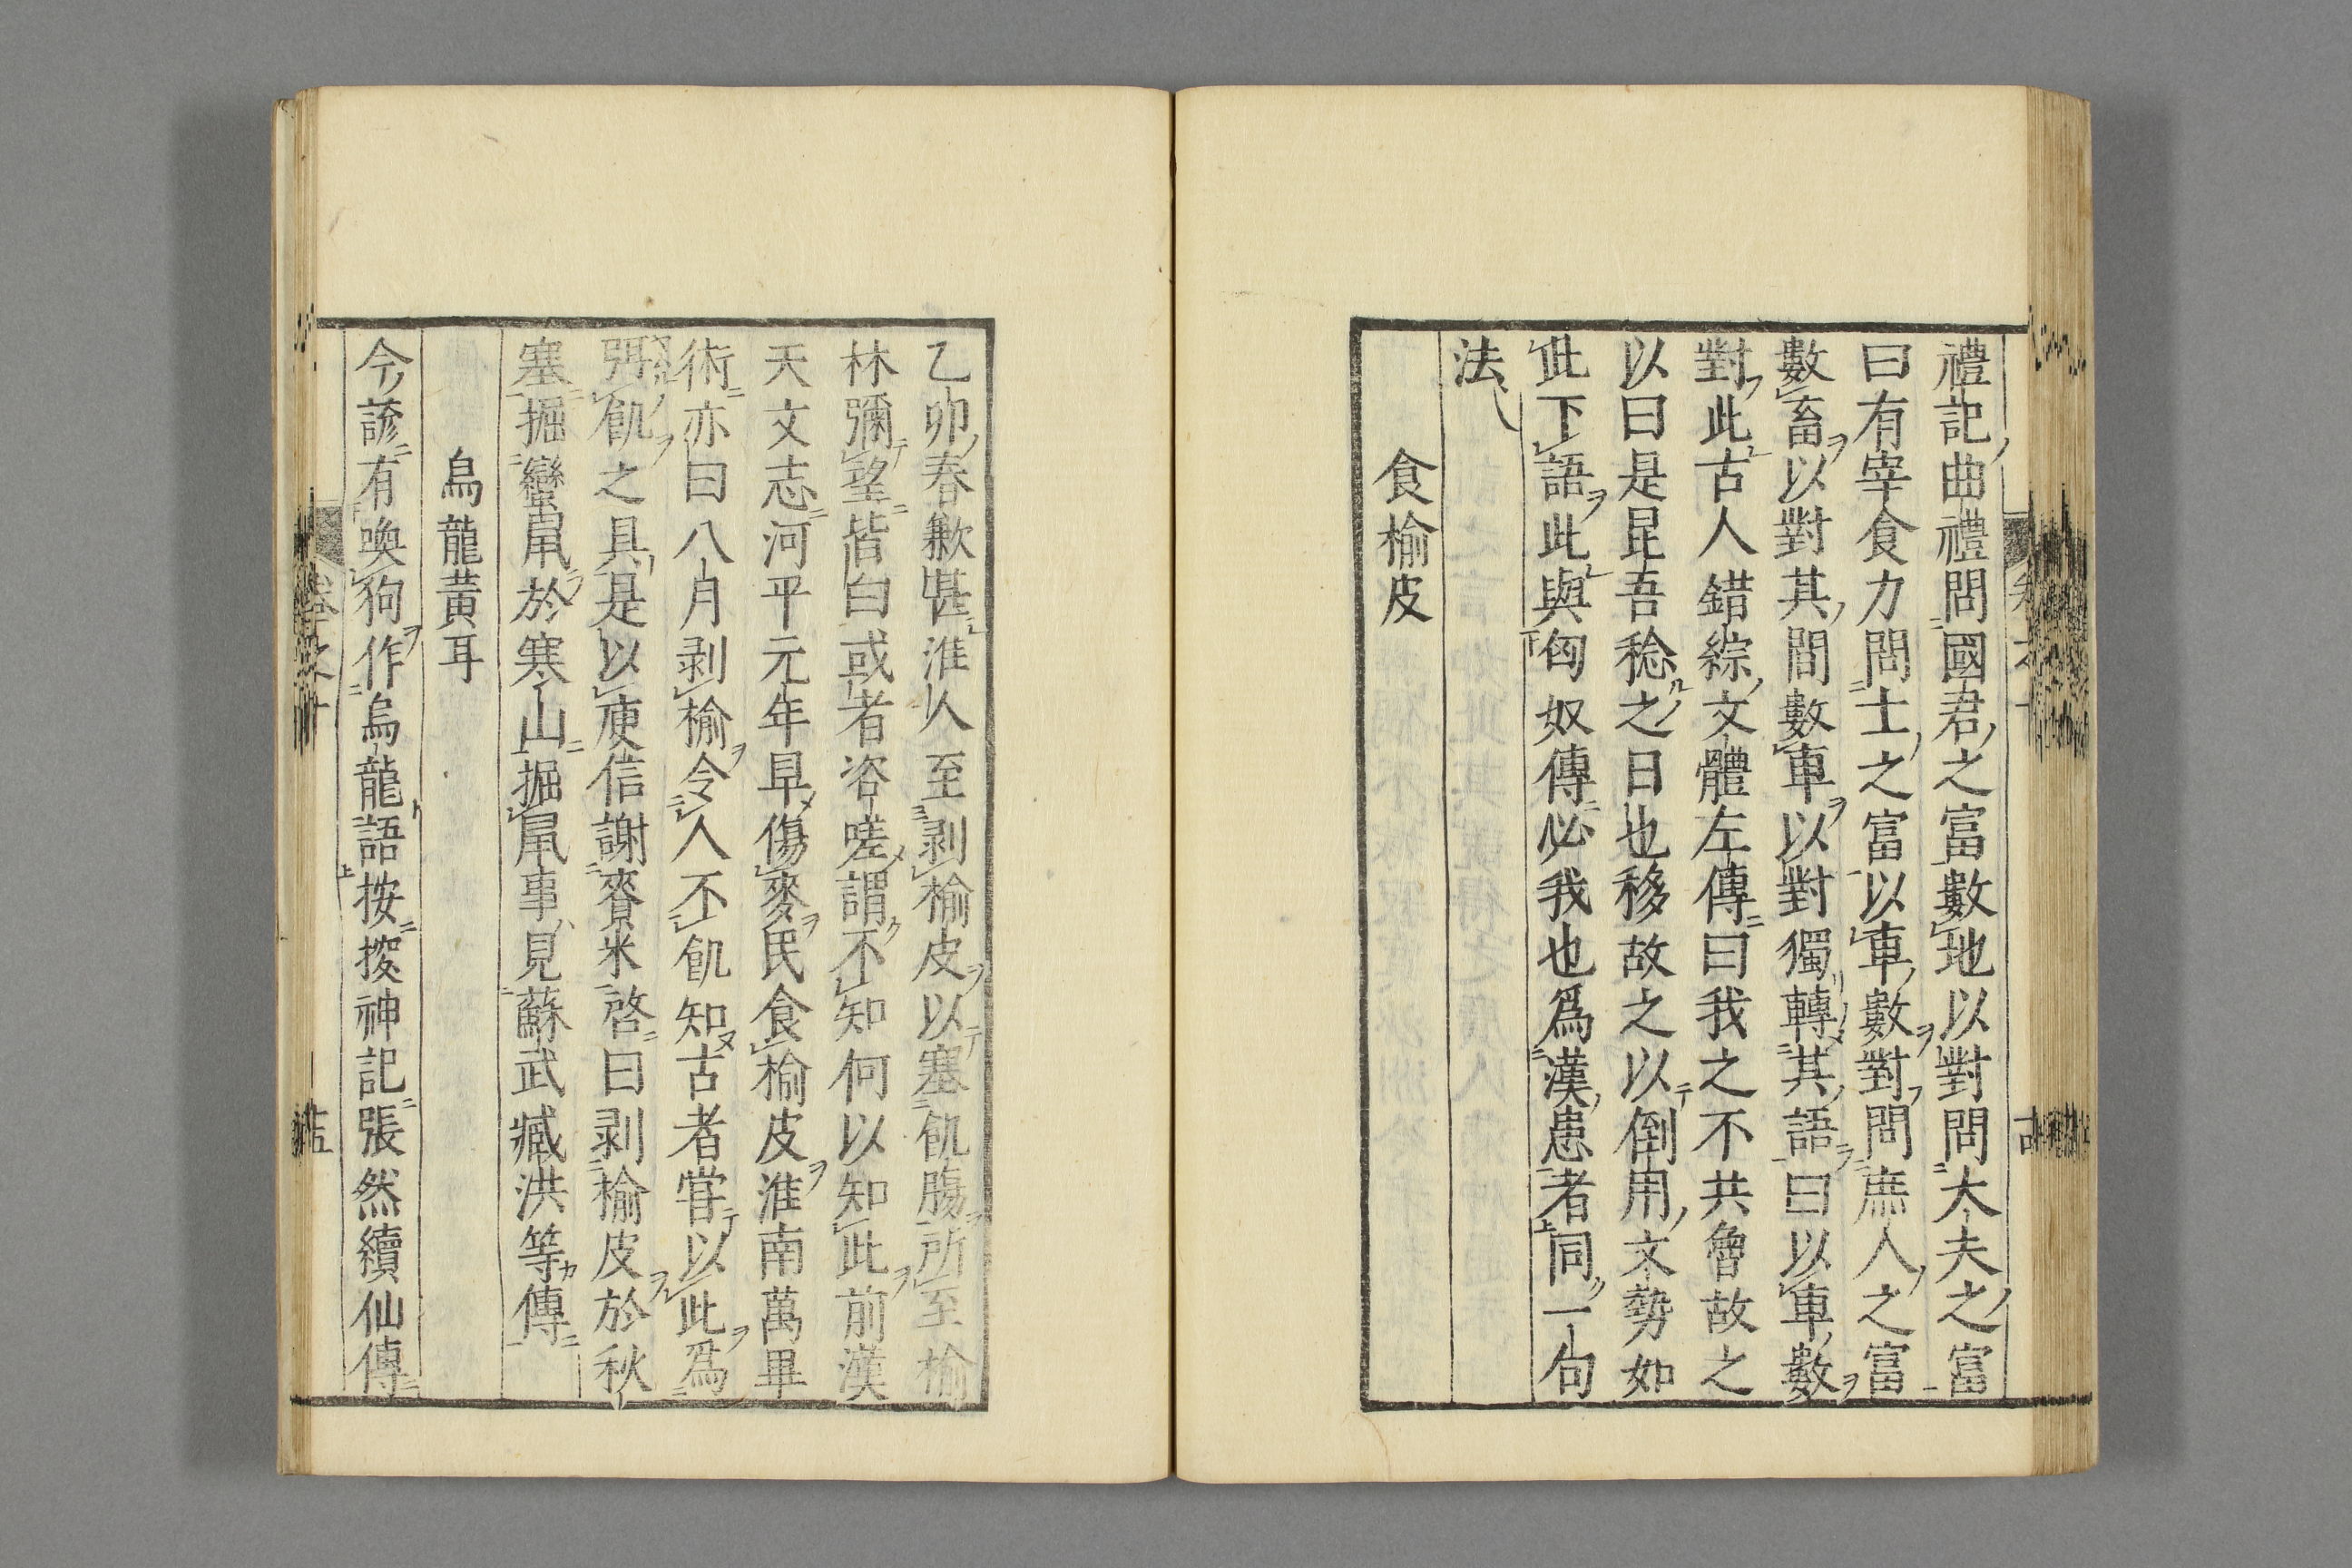 禮記曲禮問國君之富數地以對問大夫之富
曰有宰食力問士之富以車數對問庶人之富
數畜以對其間數車以對獨轉其語曰以車數
對此古人錯綜文體左傳曰我之不共魯故之
以曰是昆吾稔之日也移故之以倒用文勢如
此下語此與匈奴傳必我也爲漢患者同一句
法
食榆皮
乙卯春歉甚淮人至剥榆皮以塞飢膓所至榆
林彌望皆白或者咨嗟謂不知何以知此前漢
天文志河平元年旱傷麥民食榆皮淮南萬畢
術亦曰八月剥榆令人不飢知古者嘗以此爲
弭飢之具是以庾信謝賚米啓曰剥榆皮於秋
塞掘蠻鼠於寒山掘鼠事見蘇武臧洪等傳
烏龍黃耳
今諺有喚狗作烏龍語按搜神記張然續仙傳